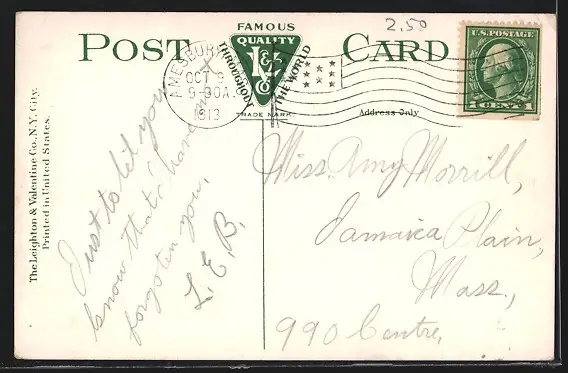 2.50
POST CARD
FAMOUS
QUALITY
L&V
Co
THROUGHOUT THE WORLD
TRADE MARK
AMESBURY
OCT 9
9-30A.
1913
U.S. POSTAGE
1 CENT 1
Address Only
The Leighton & Valentine Co., N.Y. City.
Printed in United States.
Just to let you
know that I have not
forgotten you,
L. E. B.
Miss. Amy Morrill,
Jamaica Plain,
Mass.,
990 Centre,